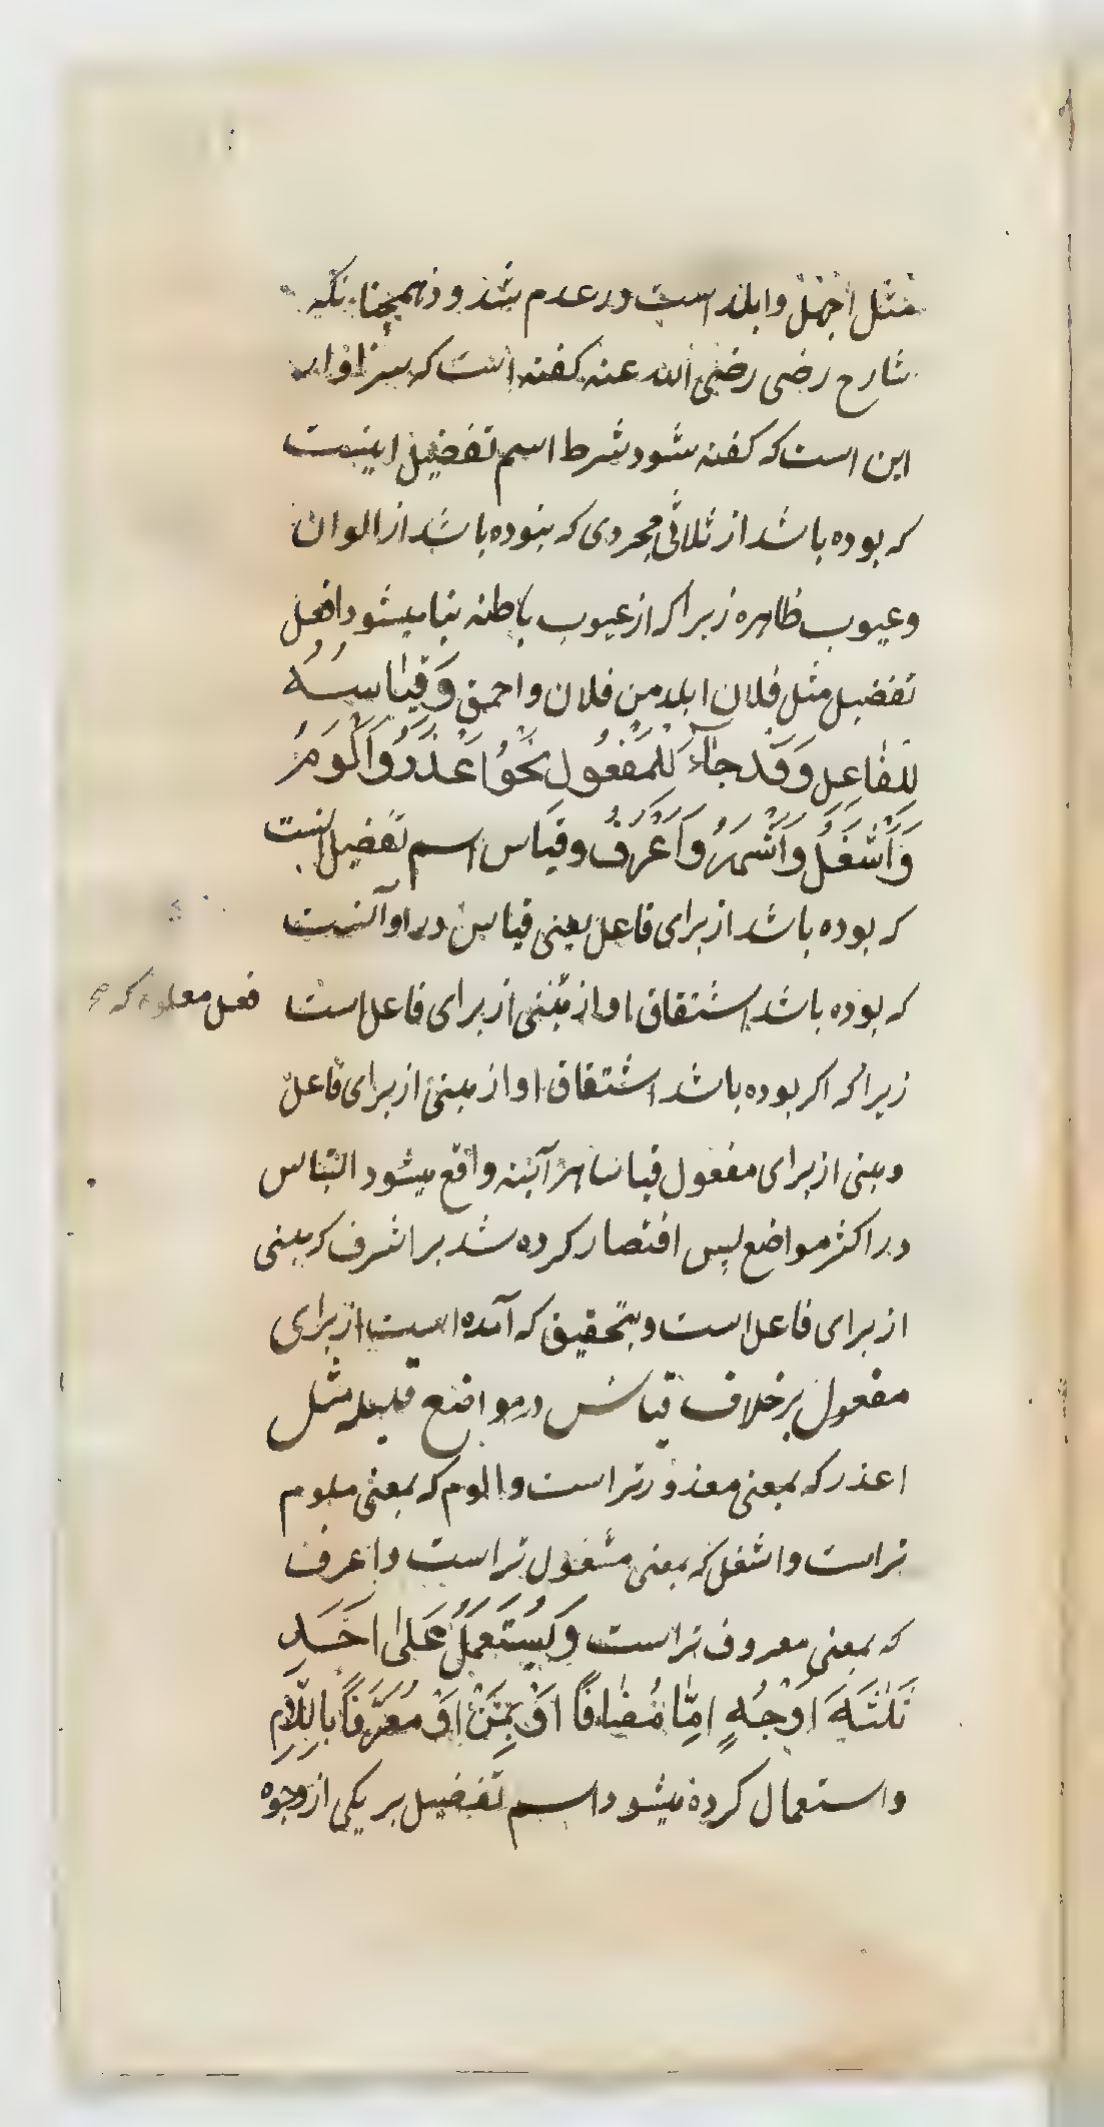 مثل اجهل وابلد است در عدم شذوذ همچنانکه
شارح رضی رضی الله عنه کفته است که سزاوار
این است که کفته شود شرط اسم تفضیل اینست
که بوده باشد از ثلاثی مجردی که نبوده باشد از الوان
وعیوب ظاهره زیرا که از عیوب باطنه بنا میشود افعل
تفضیل مثل فلان ابلد من فلان واحمق وَقِیٰاسُهُ
لِلْفٰاعِلِ وَقَدْ جٰآءَ لِلْمَفْعُولِ نَحْوُ اَعْذَرُ وَاَلْوَمُ
وَاَشْغَلُ وَاَشْهَرُ وَاَعْرَفُ وقیاس اسم تفضیل اینست
که بوده باشد از برای فاعل یعنی قیاس در او آنست
که بوده باشد اشتقاق او از مبنی از برای فاعل است
فعل معلوم که صح
زیرا که اکر بوده باشد اشتقاق او از مبنی از برای فاعل
ومبنی از برای مفعول قیاسا هر آینه واقع میشود التباس
در اکثر مواضع پس اقتصار کرده شد بر اشرف که مبنی
از برای فاعل است وبتحقیق که آمده است از برای
مفعول بر خلاف قیاس در مواضع قلیله مثل
اعذر که بمعنی معذورتر است والوم که بمعنی ملوم
تر است واشغل که بمعنی مشغول تر است واعرف
که بمعنی معروف تر است وَیُسْتَعْمَلُ عَلیٰ اَحَدِ
ثَلٰثَةِ اَوْجُهٍ اِمّٰا مُضٰافًا اَوْ بِمِنْ اَوْ مُعَرَّفًا بِاللّٰامِ
واستعمال کرده میشود اسم تفضیل بر یکی از وجوه